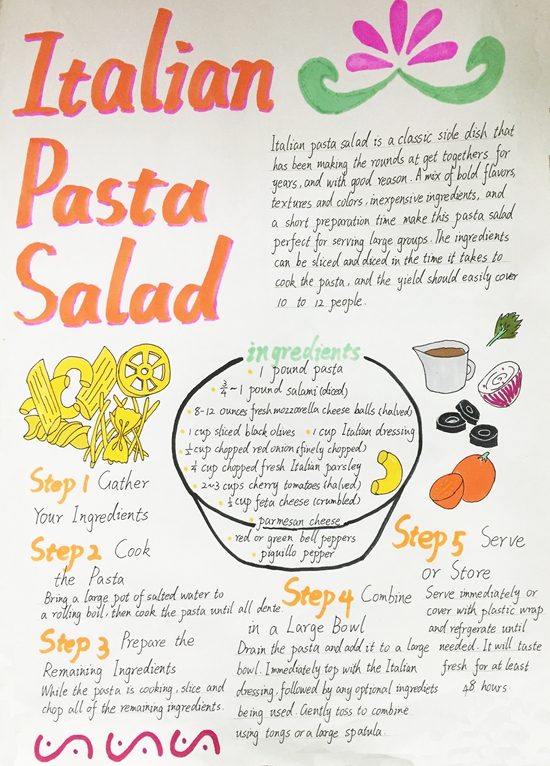 Italian
Pasta
Salad
Italian pasta salad is a classic side dish that
has been making the rounds at get togethers for
years, and with good reason. A mix of bold flavors,
textures and colors, inexpensive ingredients, and
a short preparation time make this pasta salad
perfect for serving large groups. The ingredients
can be sliced and diced in the time it takes to
cook the pasta, and the yield should easily cover
10 to 12 people.
ingredients
1 pound pasta
3/4~1 pound salami (diced)
8-12 ounces fresh mozzorella cheese balls (halved)
1 cup sliced black olives 1 cup Italian dressing
1/2 cup chopped red onion (finely chopped)
1/4 cup chopped fresh Italian parsley
2~3 cups cherry tomatoes (halved)
1/2 cup feta cheese (crumbled)
parmesan cheese
red or green bell peppers
piguillo pepper
Step 1 Gather
Your Ingredients
Step 2 Cook
the Pasta
Bring a large pot of salted water to
a rolling boil, then cook the pasta until all dente.
Step 3 Prepare the
Remaining Ingredients
While the pasta is cooking, slice and
chop all of the remaining ingredients.
Step 4 Combine
in a Large Bowl
Drain the pasta and add it to a large
bowl. Immediately top with the Italian
dressing, followed by any optional ingrediets
being used. Gently toss to combine
using tongs or a large spatula.
Step 5 Serve
or Store
Serve immediately or
cover with plastic wrap
and refrgerate until
needed. It will taste
fresh for at least
48 hours